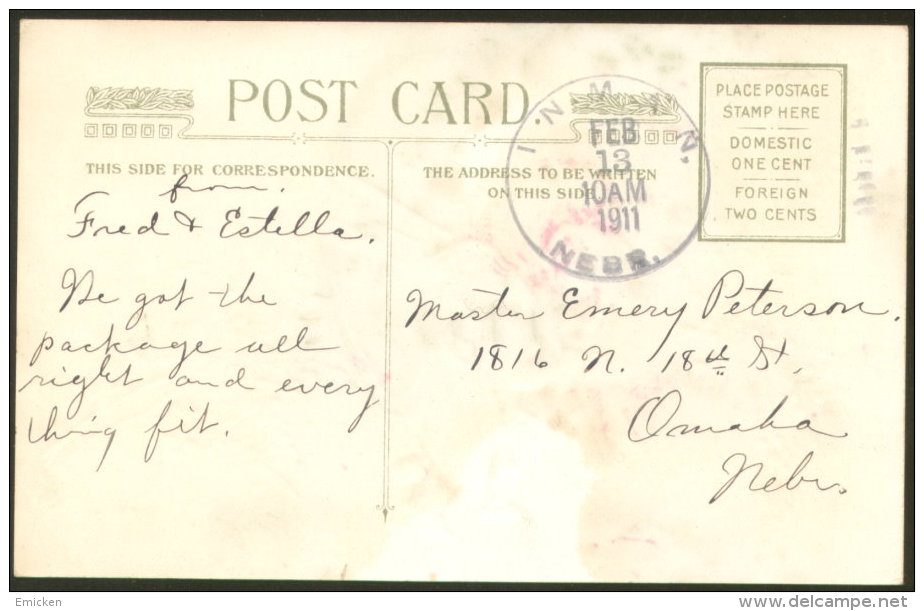 POST CARD.
THIS SIDE FOR CORRESPONDENCE.
THE ADDRESS TO BE WRITTEN
ON THIS SIDE
INMAN,
FEB
13
10AM
1911
NEBR.
PLACE POSTAGE
STAMP HERE
DOMESTIC
ONE CENT
FOREIGN
TWO CENTS
from.
Fred & Estella.
We got the
package all
right and every
thing fit.
Master Emery Peterson.
1816 N. 18th St,
Omaha
Nebr.
Emicken
delcampe.net